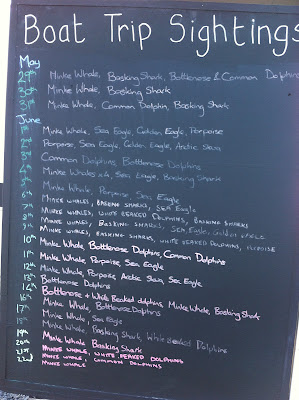 Boat Trip Sightings
May
29th Minke Whale, Basking Shark, Bottlenose & Common Dolphin
30th Minke Whale, Basking Shark
31st Minke Whale, Common Dolphin, Basking Shark
June
1st Minke Whale, Sea Eagle, Golden Eagle, Porpoise
2nd Porpoise, Sea Eagle, Golden Eagle, Arctic Skua
3rd Common Dolphins, Bottlenose Dolphins
4th Minke Whales x4, Sea Eagle, Basking Shark
Minke Whale, Porpoise, Sea Eagle
6th Minke Whales, Basking Sharks, Sea Eagle
7th Minke Whales, White Beaked Dolphins, Basking Sharks
8th Minke Whales, Basking Sharks, Sea Eagle, Golden Eagle
9th Minke Whales, Basking Sharks, White Beaked Dolphins, Porpoise
10th Minke Whale, Bottlenose Dolphins, Common Dolphins
11th Minke Whale, Porpoise, Sea Eagle
12th Minke Whale, Porpoise, Arctic Skua, Sea Eagle
13th Bottlenose Dolphins
15th Bottlenose + White Beaked dolphins, Minke Whale, Basking Shark
16th Minke Whale, Bottlenose Dolphins
17th Minke Whale, Sea Eagle
Minke Whale, Basking Shark, White Beaked Dolphins
19th Minke Whale Basking Shark
20th Minke Whale, White Beaked Dolphins
21st Minke Whale, Common Dolphins
22nd Minke Whale